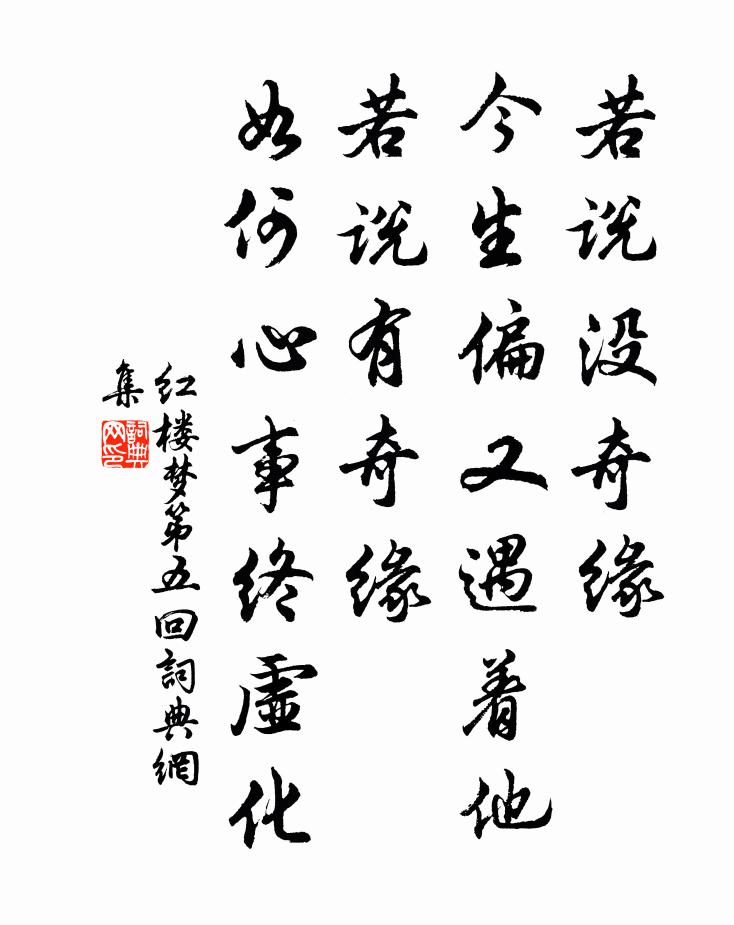 若说没奇缘
今生偏又遇着他
若说有奇缘
如何心事终虚化
红楼梦第五回詞典網
集
詞典
网印